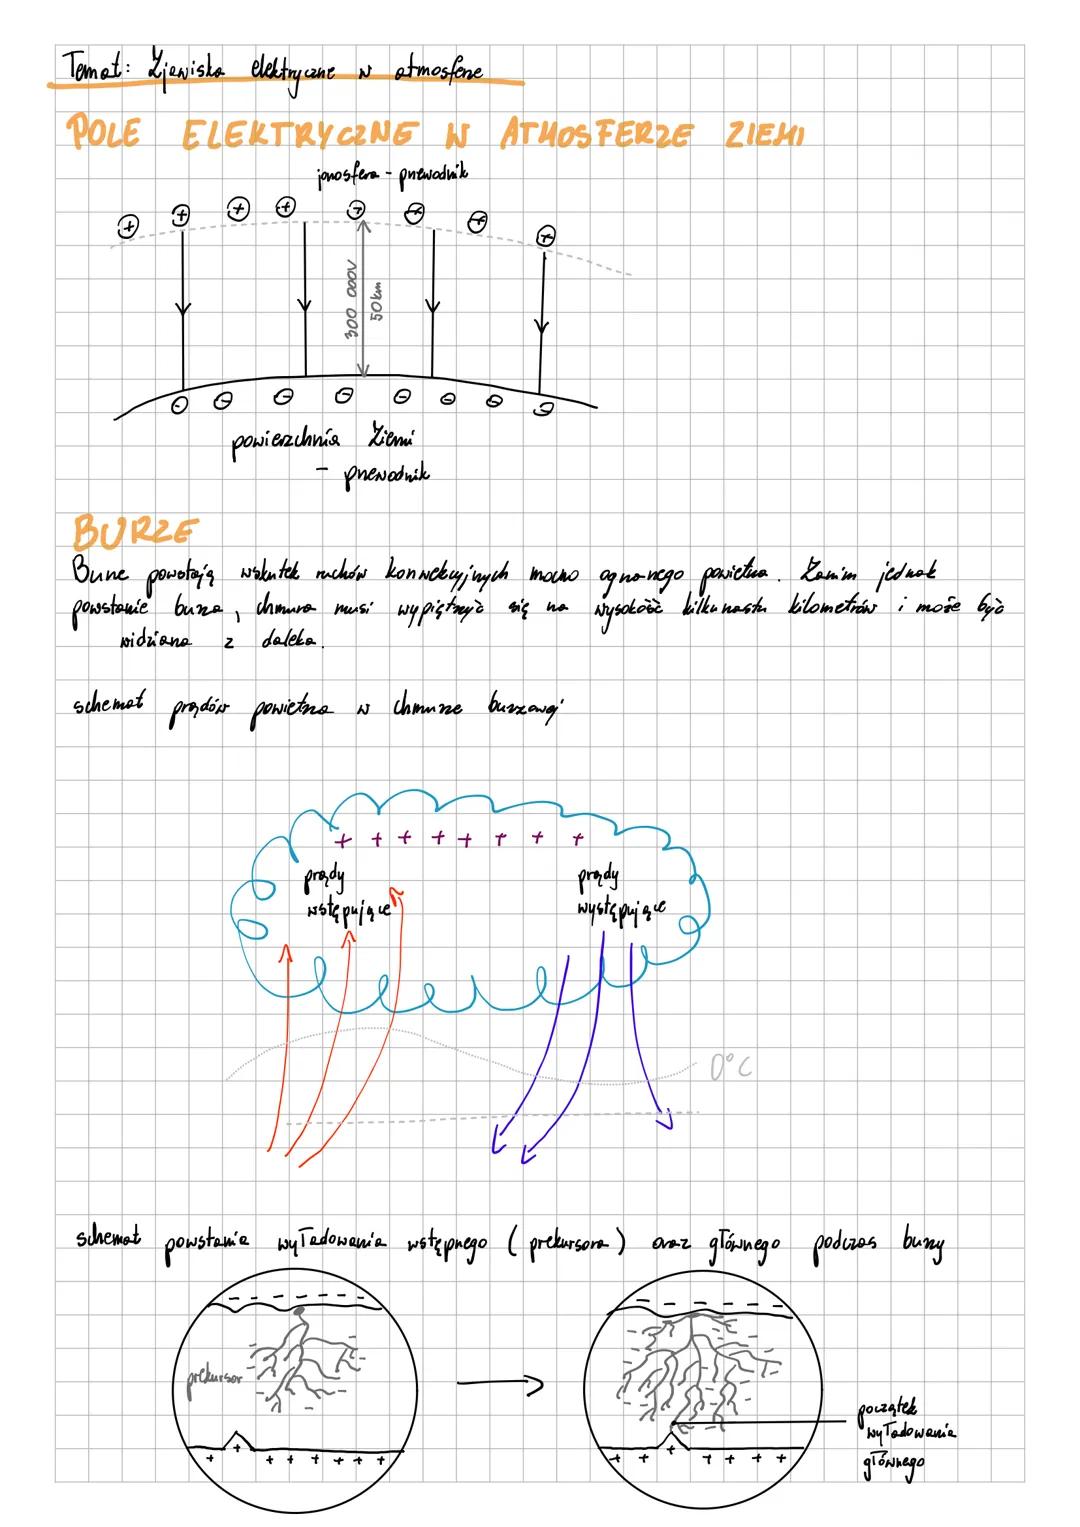 Temat: Zjawiska elektryczne w atmosferze
POLE ELEKTRYCZNE W ATMOSFERZE ZIEMI
jonosfera - przewodnik
+ + + + + + + +
300 000V
50km
- - - - - - - -
powierzchnia Ziemi
- przewodnik
BURZE
Burze powstają wskutek ruchów konwekcyjnych mocno ogrzanego powietrza. Zanim jednak
powstanie burza, chmura musi wypiętrzyć się na wysokość kilkunastu kilometrów i może być
widziana z daleka.
schemat prądów powietrza w chmurze burzowej
+ + + + + + + +
prądy
wstępujące
prądy
występujące
0°C
schemat powstania wyładowania wstępnego (prekursora) oraz głównego podczas burzy
- - - - - - -
prekursor
+ + + + + + + +
- - - - - -
początek
wyładowania
głównego
+ + + + + + +